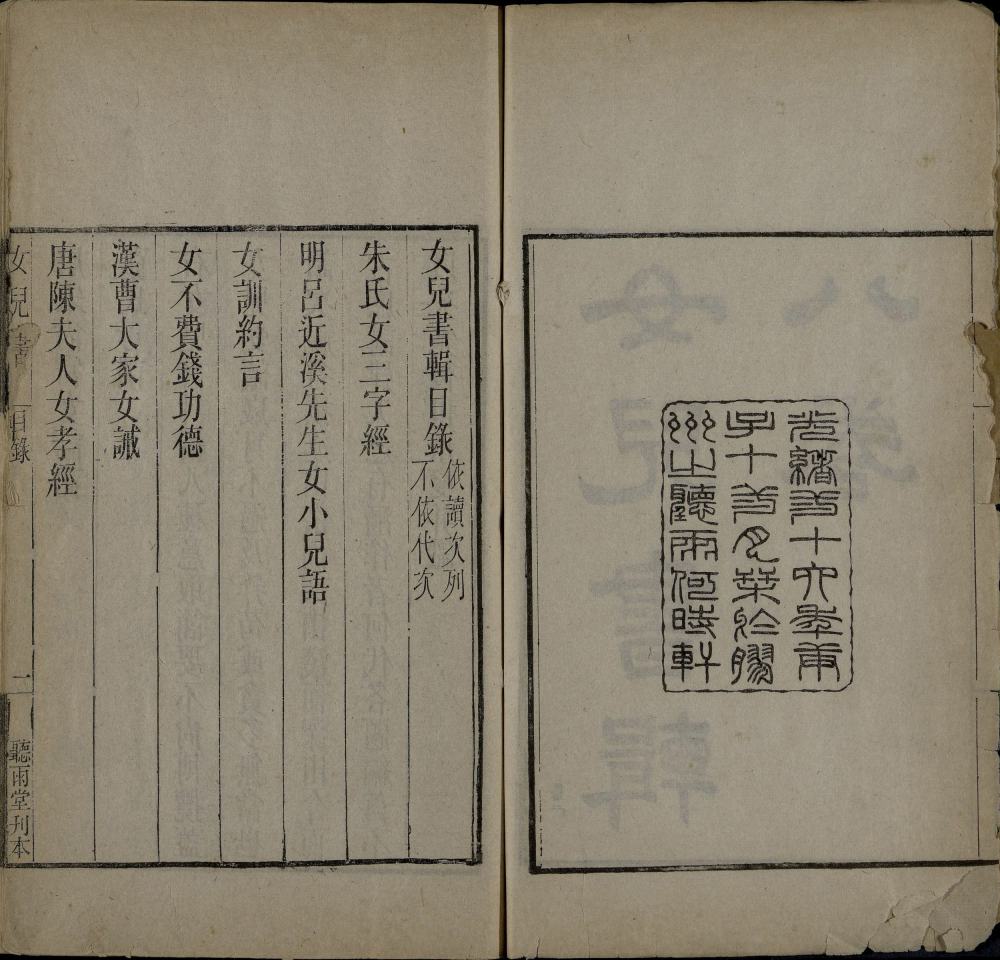 光緒弍十六年庚
子十弍月栞於膠
州之聽雨何時軒
女兒書輯目錄
依讀次列
不依代次
朱氏女三字經
明呂近溪先生女小兒語
女訓約言
女不費錢功德
漢曹大家女誡
唐陳夫人女孝經
女兒書 目錄 聽雨堂刊本